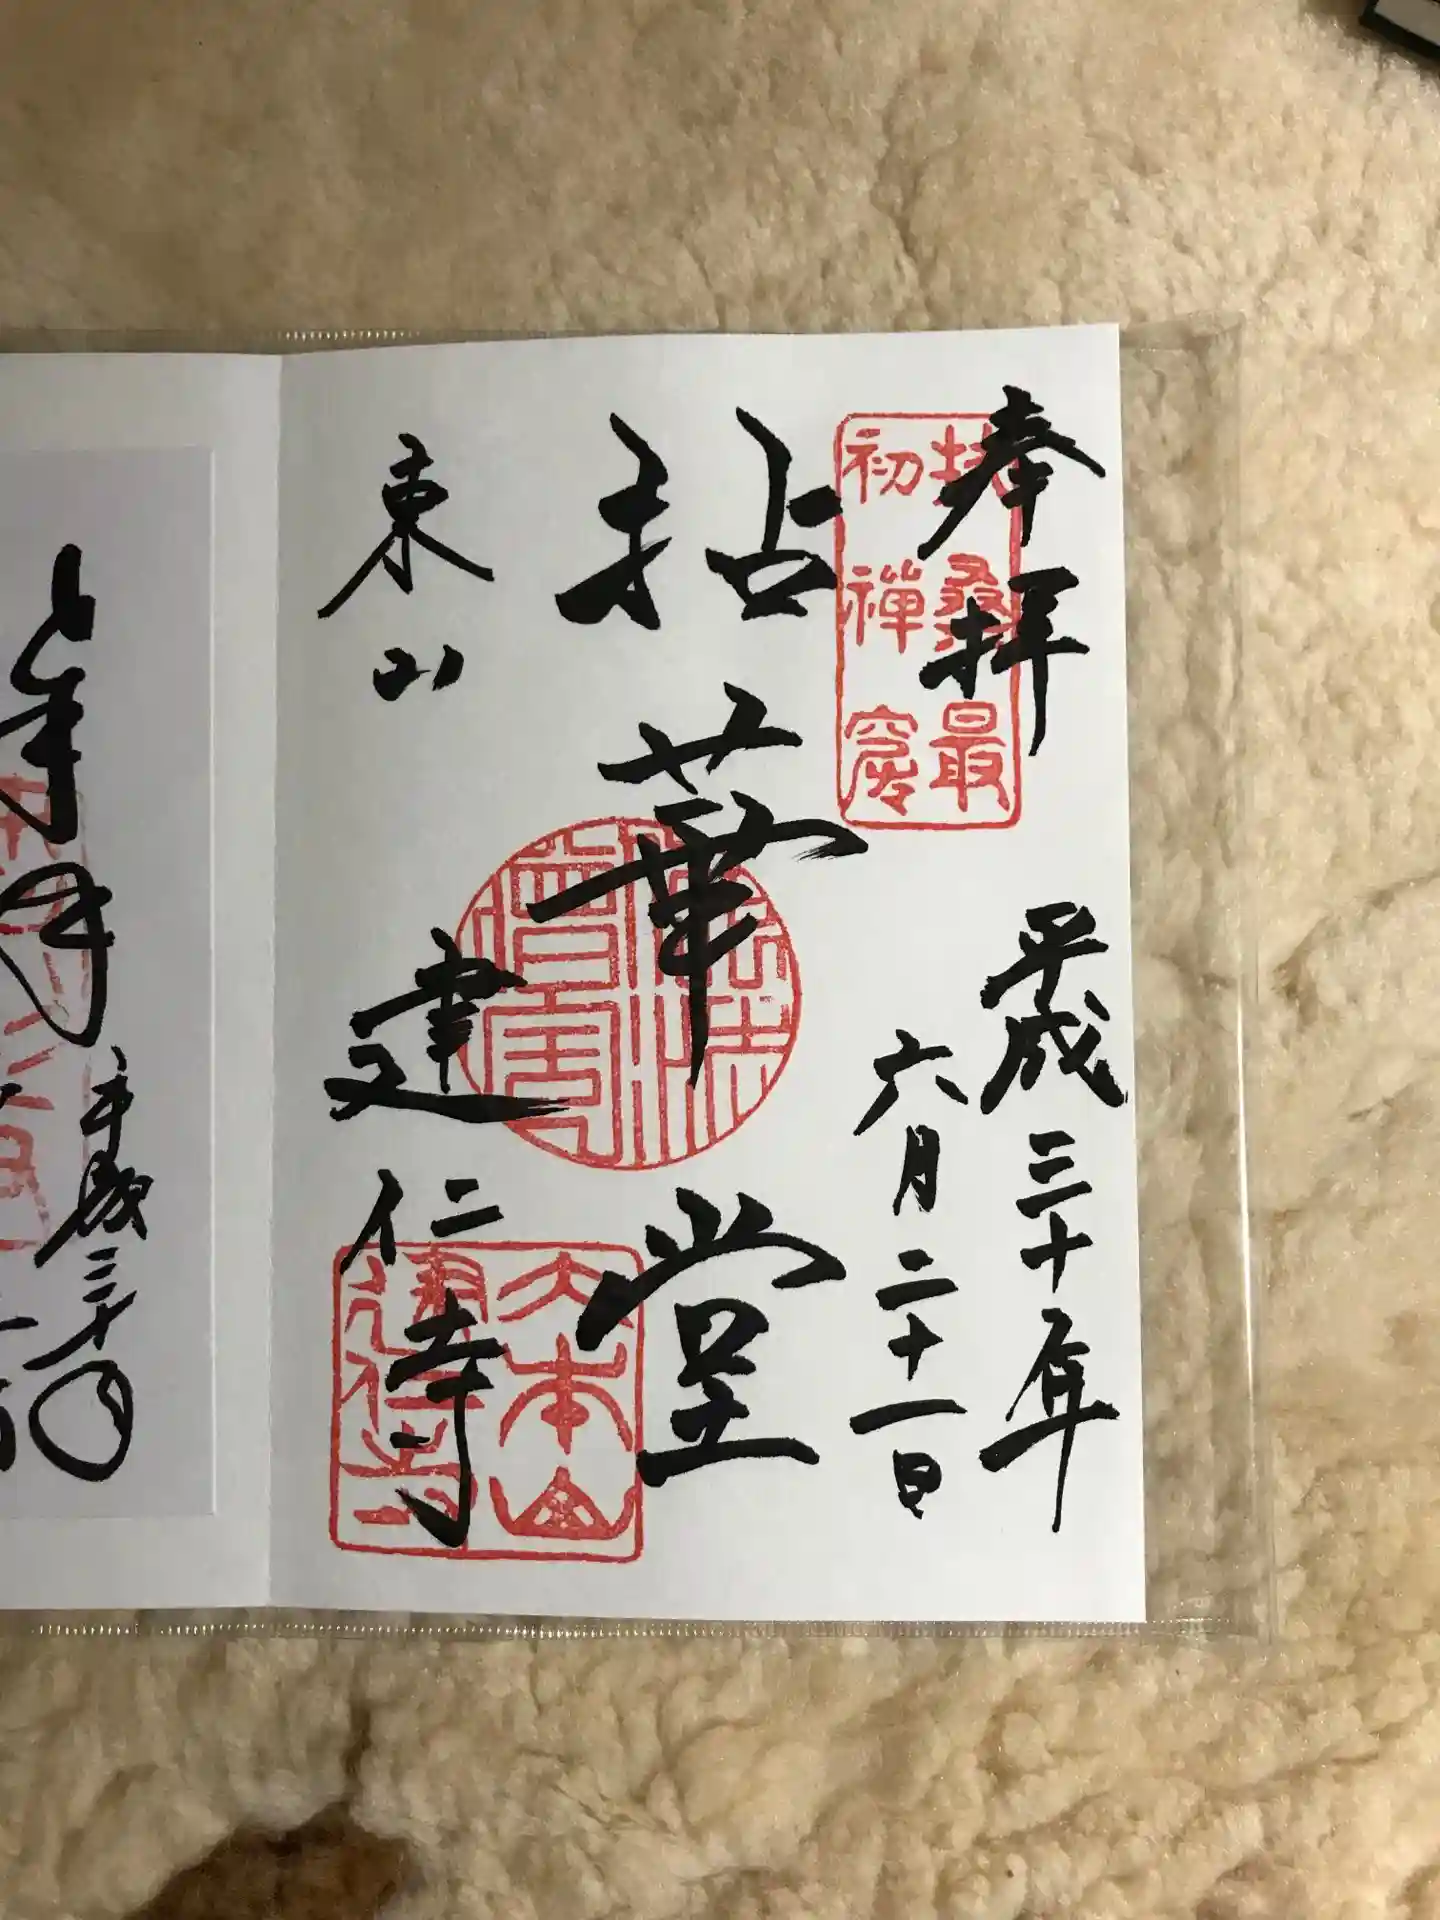 奉拝
平成三十年
六月二十一日
扶桑最
初禅窟
拈華堂
東山
建仁寺
大本山
建仁寺
平成三十